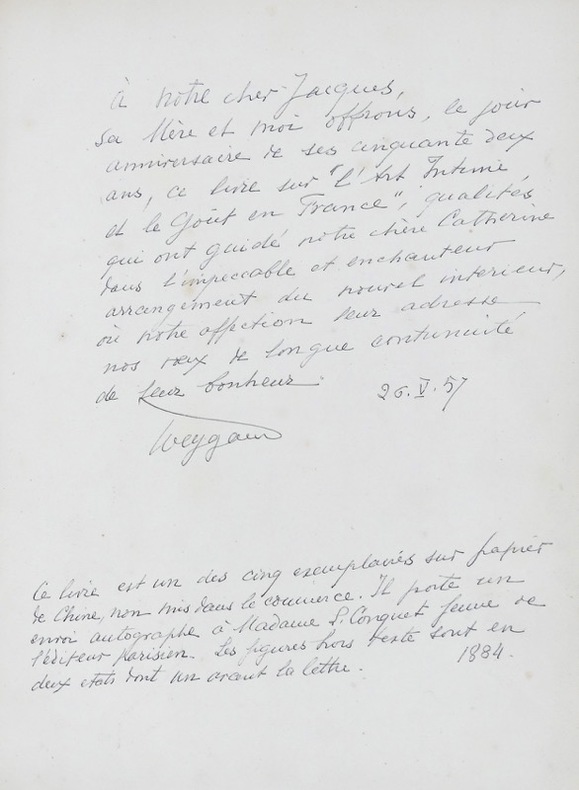 à notre cher Jacques,
sa Mère et moi offrons, le jour
anniversaire de ses cinquante deux
ans, ce livre sur "l'Art Intime
et le Goût en France", qualités
qui ont guidé notre chère Catherine
dans l'impeccable et enchanteur
arrangement du nouvel interieur,
où notre affection leur adresse
nos vœux de longue continuité
de leur bonheur
26.V.57
Weygand
Ce livre est un des cinq exemplaires sur papier
de Chine, non mis dans le commerce. Il porte un
envoi autographe à Madame L. Conquet femme de
l'éditeur parisien. Les figures hors texte sont en
deux etats dont un avant la lettre.
1884.